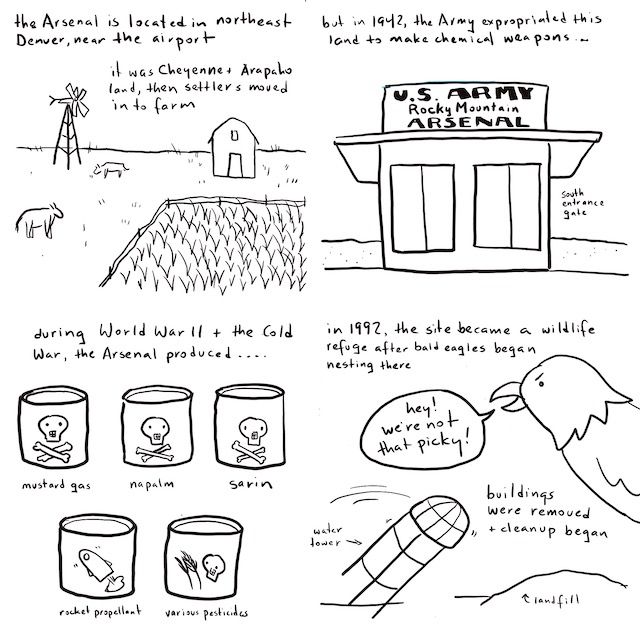 the Arsenal is located in northeast
Denver, near the airport
it was Cheyenne + Arapaho
land, then settlers moved
in to farm
but in 1942, the Army expropriated this
land to make chemical weapons...
U.S. ARMY
Rocky Mountain
ARSENAL
south
entrance
gate
during World War II + the Cold
War, the Arsenal produced....
mustard gas
napalm
sarin
rocket propellant
various pesticides
in 1992, the site became a wildlife
refuge after bald eagles began
nesting there
hey!
we're not
that picky!
buildings
were removed
+ cleanup began
water
tower →
↑ landfill